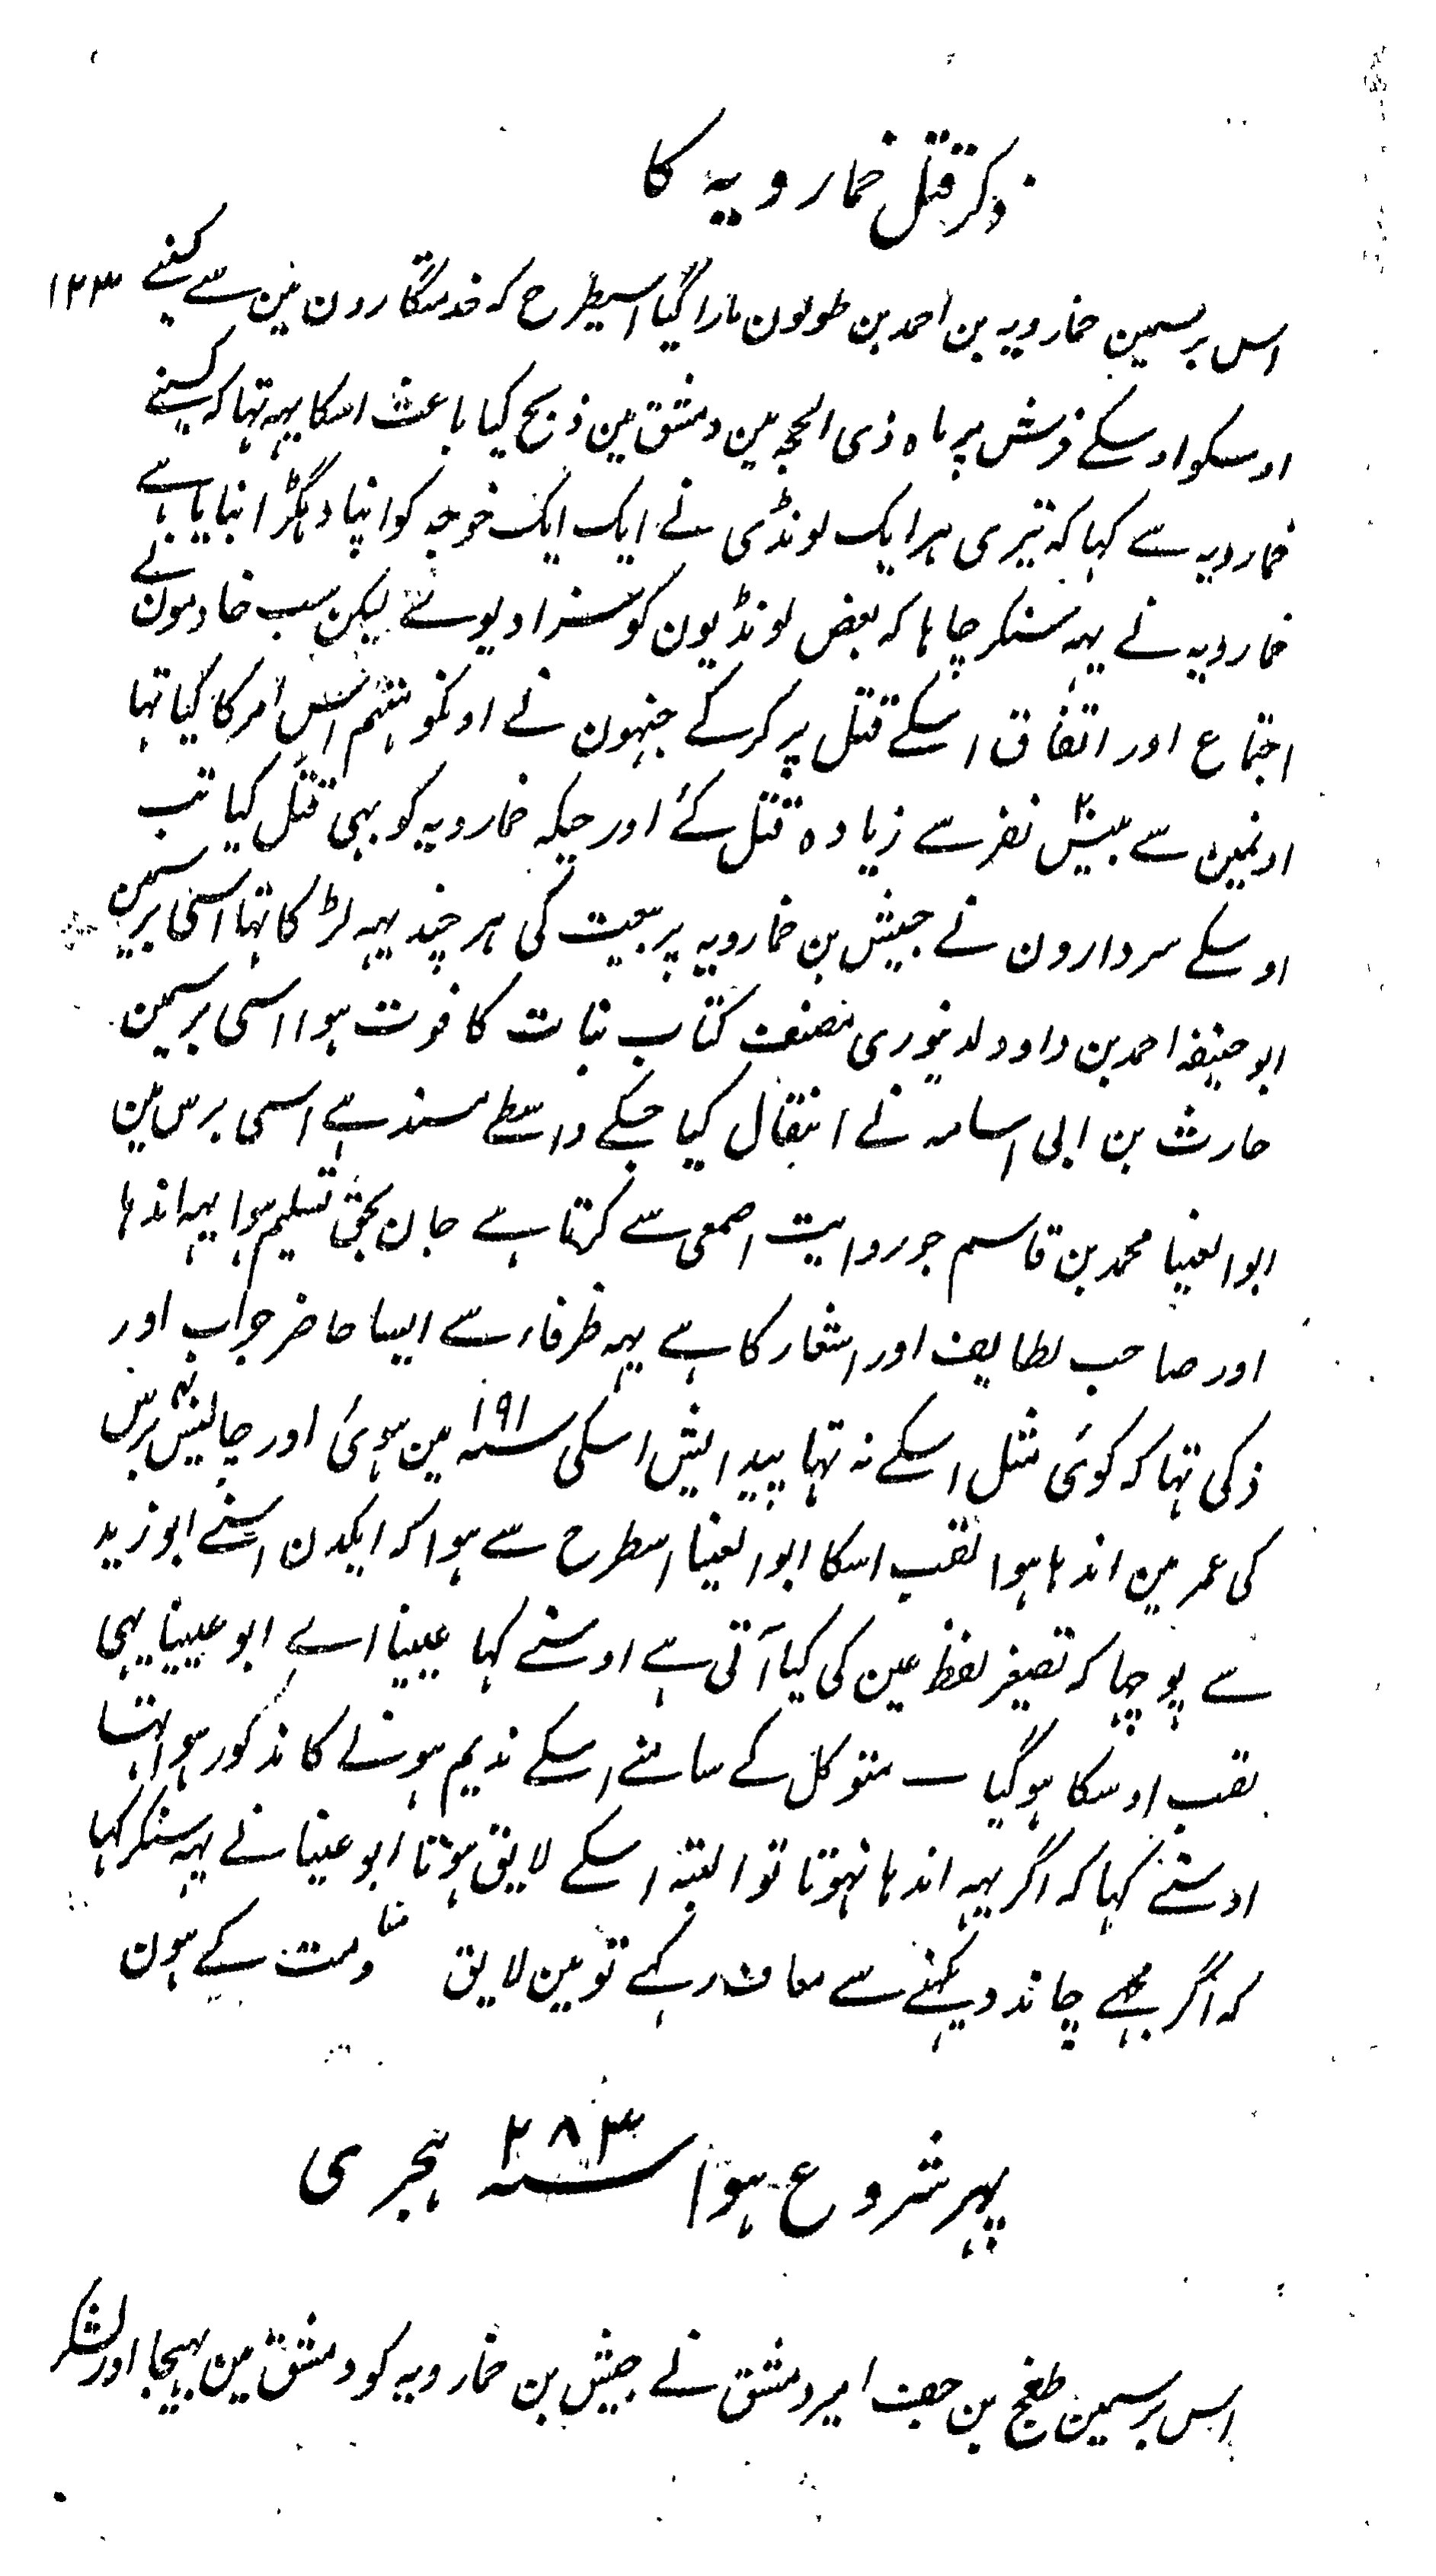 ذکر قتل خمارویہ کا
اس برسمین خمارویہ بن احمد بن طولون مارا گیا اسیطرح کہ خدمتگارون مین سے کسنے ۱۲۳
اوسکو اوسکے فرش پر ماہ ذی الحجہ مین دمشق مین ذبح کیا باعث اسکا یہہ تہا کہ کسنے
خمارویہ سے کہا کہ تیری ہر ایک لونڈی نے ایک ایک خوجہ کو اپنا دہگڑا بنایا ہے
خمارویہ نے یہہ سنکر چاہا کہ بعض لونڈیون کو سزا دیوے لیکن سب خادمون نے
اجتماع اور اتفاق اسکے قتل پر کرکے جنہون نے اونکو متہم اس امر کا کیا تہا
اونمین سے بیس ۲۰ نفر سے زیادہ قتل کئے اور جبکہ خمارویہ کو بہی قتل کیا تب
اوسکے سردارون نے جیش بن خمارویہ پر بیعت کی ہر چند یہہ لڑکا تہا اسی برسمین
ابو حنیفہ احمد بن داود دینوری مصنف کتاب نبات کا فوت ہوا اسی برسمین
حارث بن ابی اسامہ نے انتقال کیا جسکے واسطے مسند ہے اسی برس مین
ابو العینا محمد بن قاسم جو روایت اصمعی سے کرتا ہے جان بحق تسلیم ہوا یہہ اندہا
اور صاحب لطایف اور اشعار کا ہے یہہ ظرفاء سے ایسا حاضر جواب اور
ذکی تہا کہ کوئی مثل اسکے نہ تہا پیدایش اسکی سنہ ۱۹۱ مین ہوئی اور چالیس ۴۰ برس
کی عمر مین اندہا ہوا لقب اسکا ابو العینا اسطرح سے ہوا کہ ایکدن اسنے ابو زید
سے پوچہا کہ تصغیر لفظ عین کی کیا آتی ہے اوسنے کہا عیینا اے ابو عیینا یہی
لقب اوسکا ہوگیا ــ متوکل کے سامنے اسکے ندیم ہونے کا مذکور ہوا تہا
اوسنے کہا کہ اگر یہہ اندہا نہوتا تو البتہ اسکے لایق ہوتا ابو عینا نے یہہ سنکر کہا
کہ اگر مجہے چاند دیکہنے سے معاف رکہے تو مین لایق منادمت کے ہون
پہر شروع ہوا سنہ ۲۸۳ ہجری
اس برسمین طغج بن جف امیر دمشق نے جیش بن خمارویہ کو دمشق مین بہیجا اور لشکر